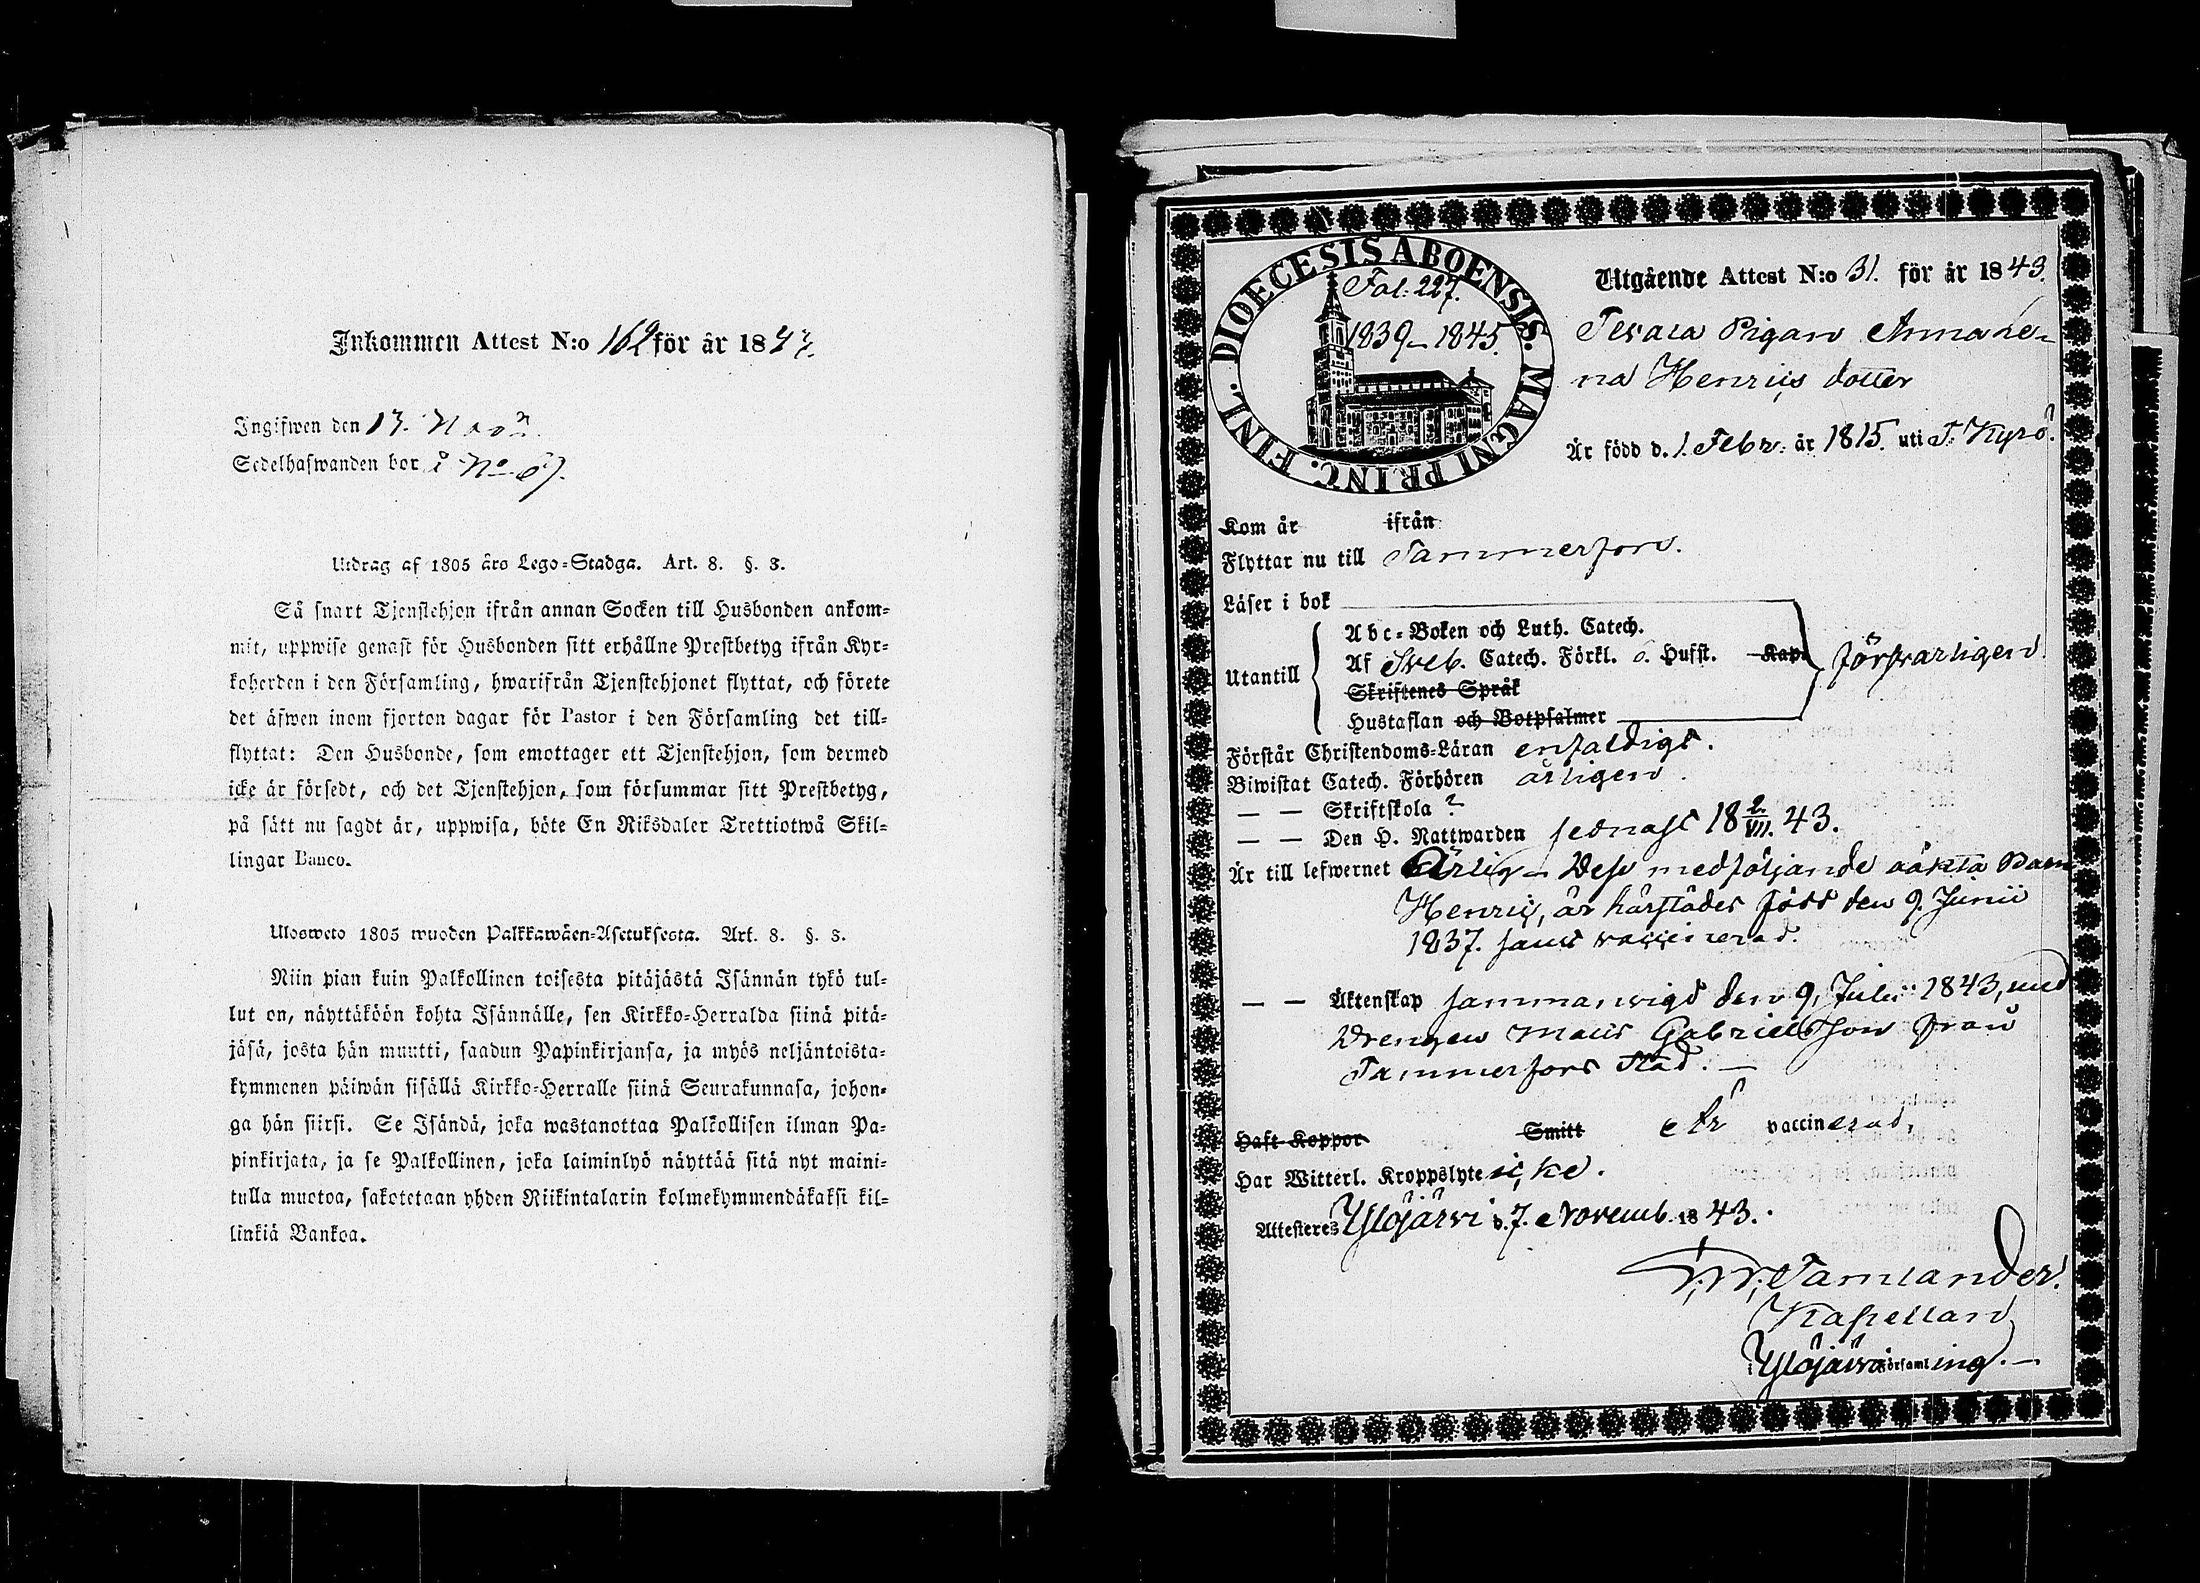 Inkommen Attest N:o 162 för år 1843.
Ingifwen den 13. Nov
Sedelhafwanden bor i No 67.
Utdrag af 1805 års Lego-Stadga. Art. 8. §. 3.
Så snart Tjenstehjon ifrån annan Socken till Husbonden ankom-
mit, uppwise genast för Husbonden sitt erhållne Prestbetyg ifrån Kyr-
koherden i den Församling, hwarifrån Tjenstehjonet flyttat, och förete
det äfwen inom fjorton dagar för Pastor i den Församling det till-
flyttat: Den Husbonde, som emottager ett Tjenstehjon, som dermed
icke är försedt, och det Tjenstehjon, som försummar sitt Prestbetyg,
på sätt nu sagdt är, uppwisa, böte En Riksdaler Trettiotwå Skil-
lingar Banco.
Ulosweto 1805 wuoden Palkkawäen-Asetuksesta. Art. 8. §. 3.
Niin pian kuin Palkollinen toisesta pitäjästä Isännän tykö tul-
lut on, näyttäköön kohta Isännälle, sen Kirkko-Herralda siinä pitä-
jäsä, josta hän muutti, saadun Papinkirjansa, ja myös neljäntoista-
kymmenen päiwän sisällä Kirkko-Herralle siinä Seurakunnasa, johon-
ga hän siirsi. Se Isändä, joka wastanottaa Palkollisen ilman Pa-
pinkirjata, ja se Palkollinen, joka laiminlyö näyttää sitä nyt maini-
tulla muotoa, sakotetaan yhden Riikintalarin kolmekymmendäkaksi kil-
linkiä Bankoa.
DIOECESIS ABOENSIS. MAGNI PRINC. FINL.
Fol. 227.
1839-1845.
Utgående Attest N:o 31. för år 1843.
Pigan Annale-
na Henrics dotter
Är född d. 1. Febr. år 1815. uti T. Kyrö.
Kom år ifrån
Flyttar nu till Tammerfors.
Läser i bok
Utantill
Abc-Boken och Luth. Catech.
Af Sveb. Catech. Förkl. o. Husst. Kap.
Skriftenes Språk
Hustaflan och Botpsalmer
försvarligen
Förstår Christendoms-Läran enfaldigt.
Biwistat Catech. Förhören årligen.
— — Skriftskola ?
— — Den H. Nattwarden sednast 18 2/VII. 43.
Är till lefwernet Ärlig - Dess medföljande oäkta Barn
Henric, är härstädes född den 9. Junii
1837. samt vaccinerad.
— — Äktenskap sammanvigd den 9. Julii 1843, med
Drengen Matts Gabrielsson från
Tammerfors Stad. —
Haft Koppor Smitt Är vaccinerad,
Har Witterl. Kroppslyte icke.
Attesteres Ylöjärvi d. 7. Novemb. 1843.
Tamlander.
Kapellan
i Ylöjärvi Församling. —